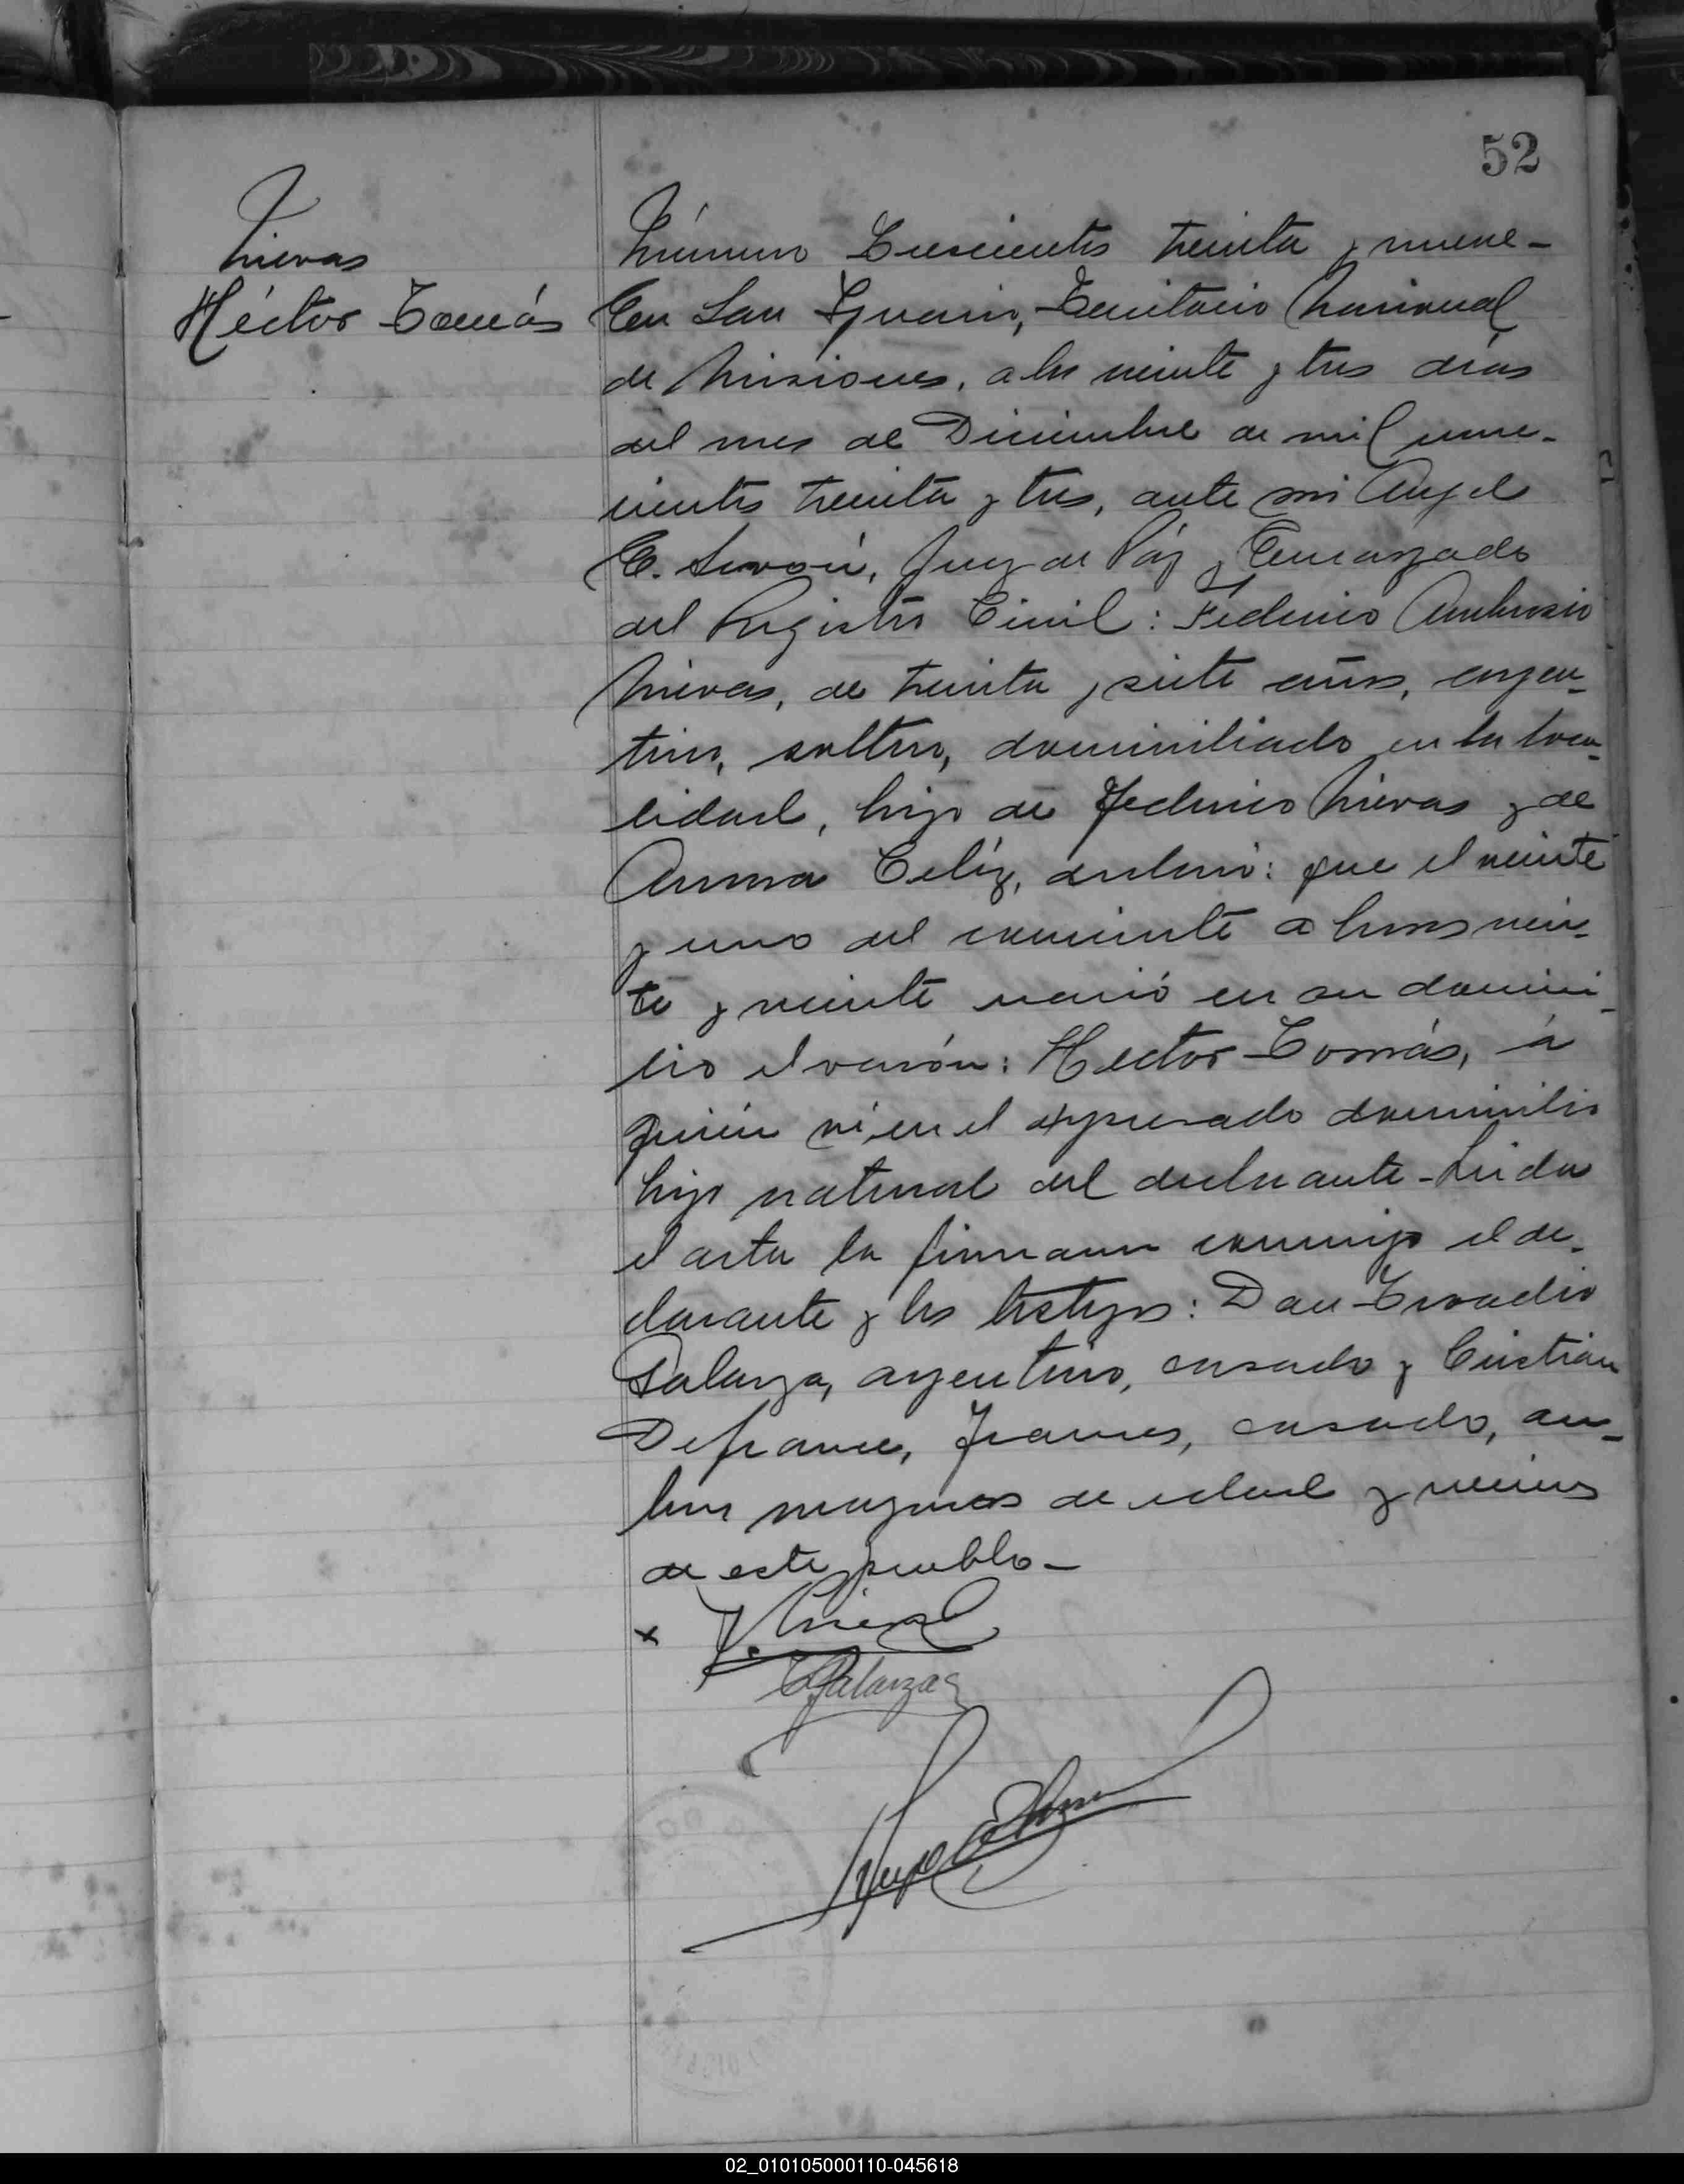 52
Nievas
Héctor Tomás
Número Trescientos treinta y nueve-
En San Ignacio, Territorio Nacional
de Misiones, a los veinte y tres días
del mes de Diciembre de mil nove-
cientos treinta y tres, ante mi Angel
E. Juez de Páz y Encargado
del Registro Civil: Federico Ambrosio
Nievas, de treinta y siete años, argen-
tino, soltero, domiciliado en la loca-
lidad, hijo de Federico Nievas y de
Celíz, declaró: que el veinte
y uno del corriente a horas vein-
te y veinte nació en su domici-
lio el varón: Hector Tomás, á
quién ví en el expresado domicilio
hijo natural del declarante-Leida
el acta la firmaron conmigo el de-
clarante y los testigos: Don
Galarza, argentino, casado y Cristian
Defrance, frances, casado, am-
bos mayores de edad y vecinos
de este pueblo-
x F. Nievas
Galarza
02_010105000110-045618